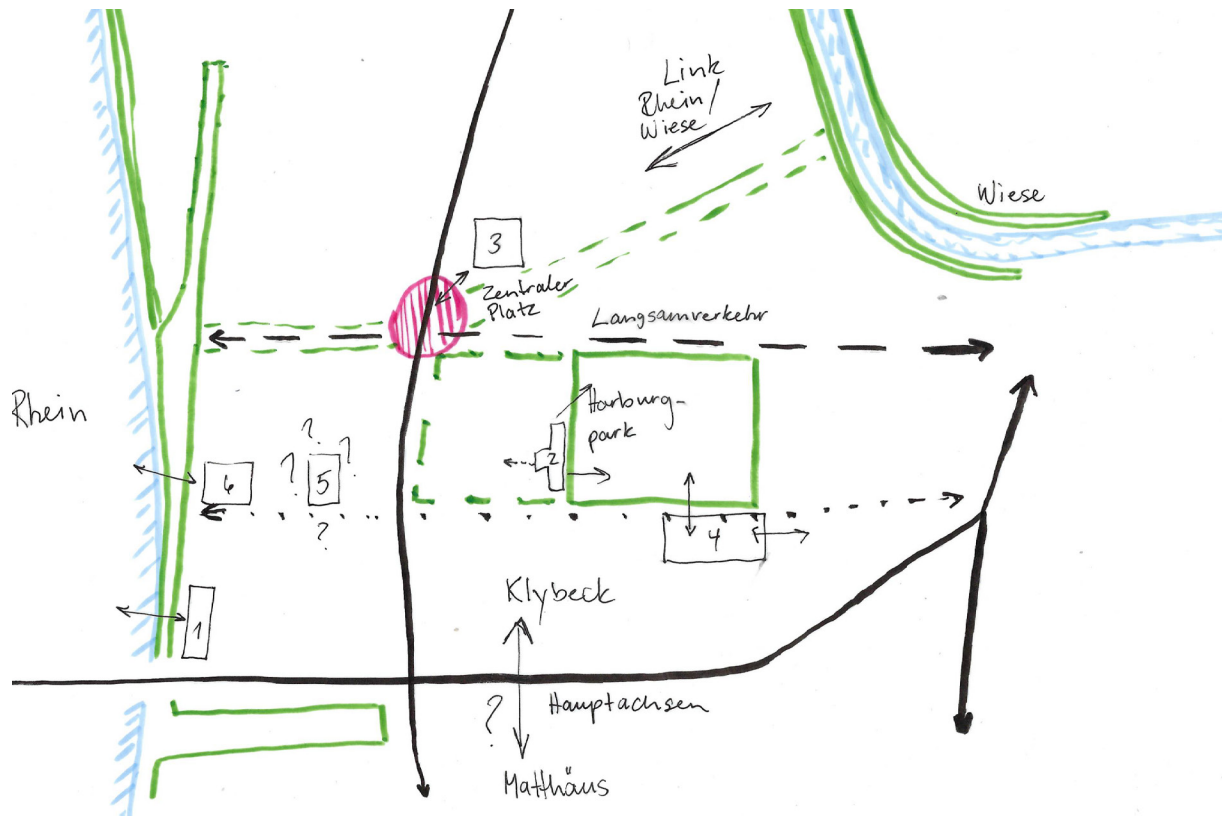 Link
Rhein/
Wiese
Wiese
3
Zentraler
Platz
Langsamverkehr
Rhein
Harburg-
park
2
?
?
?
5
?
6
4
1
Klybeck
?
Hauptachsen
Matthäus